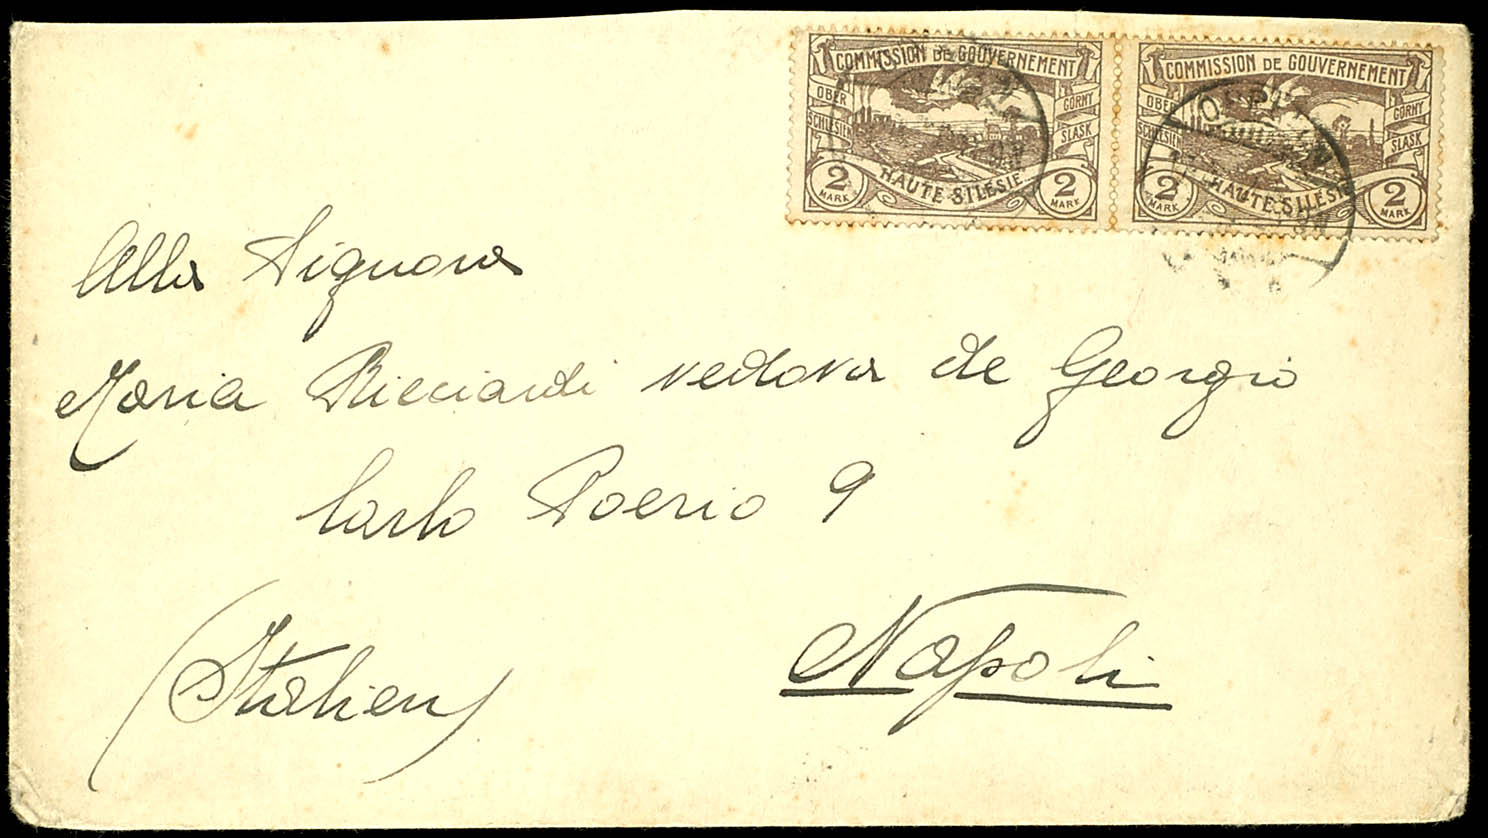 COMMISSION DE GOUVERNEMENT
OBER SCHLESIEN
GORNY SLASK
HAUTE SILESIE
2 MARK
2 MARK
COMMISSION DE GOUVERNEMENT
OBER SCHLESIEN
GORNY SLASK
HAUTE SILESIE
2 MARK
2 MARK
Alla Signora
Maria Ricciardi vedova de Georgio
Carlo Poerio 9
Napoli
(Italien)